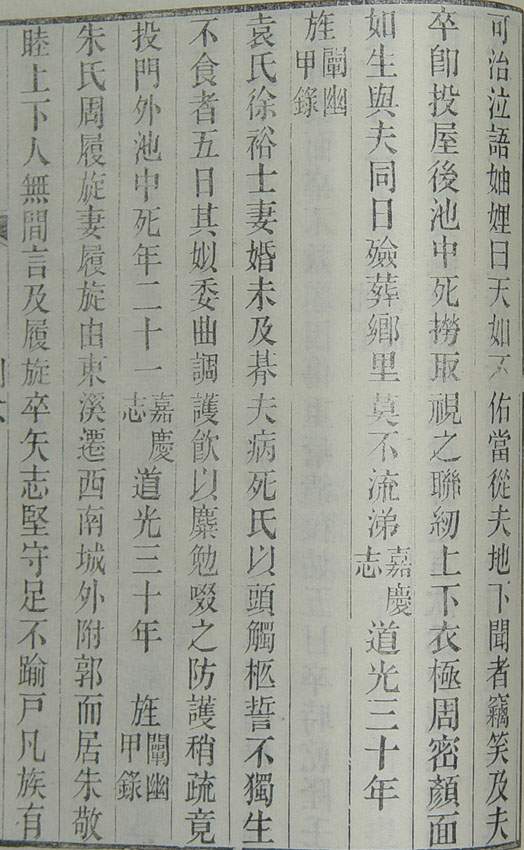 可治泣語妯娌曰天如不佑當從夫地下聞者竊笑及夫
卒即投屋後池中死撈取視之聯紉上下衣極周密顏面
如生與夫同日殮葬鄉里莫不流涕嘉慶志道光三十年
旌闡幽甲錄
袁氏徐裕士妻婚未及朞夫病死氏以頭觸柩誓不獨生
不食者五日其姒委曲調護飲以麋勉啜之防護稍疏竟
投門外池中死年二十一嘉慶志道光三十年旌闡幽甲錄
朱氏周履旋妻履旋由東溪遷西南城外附郭而居朱敬
睦上下人無間言及履旋卒矢志堅守足不踰戶凡族有